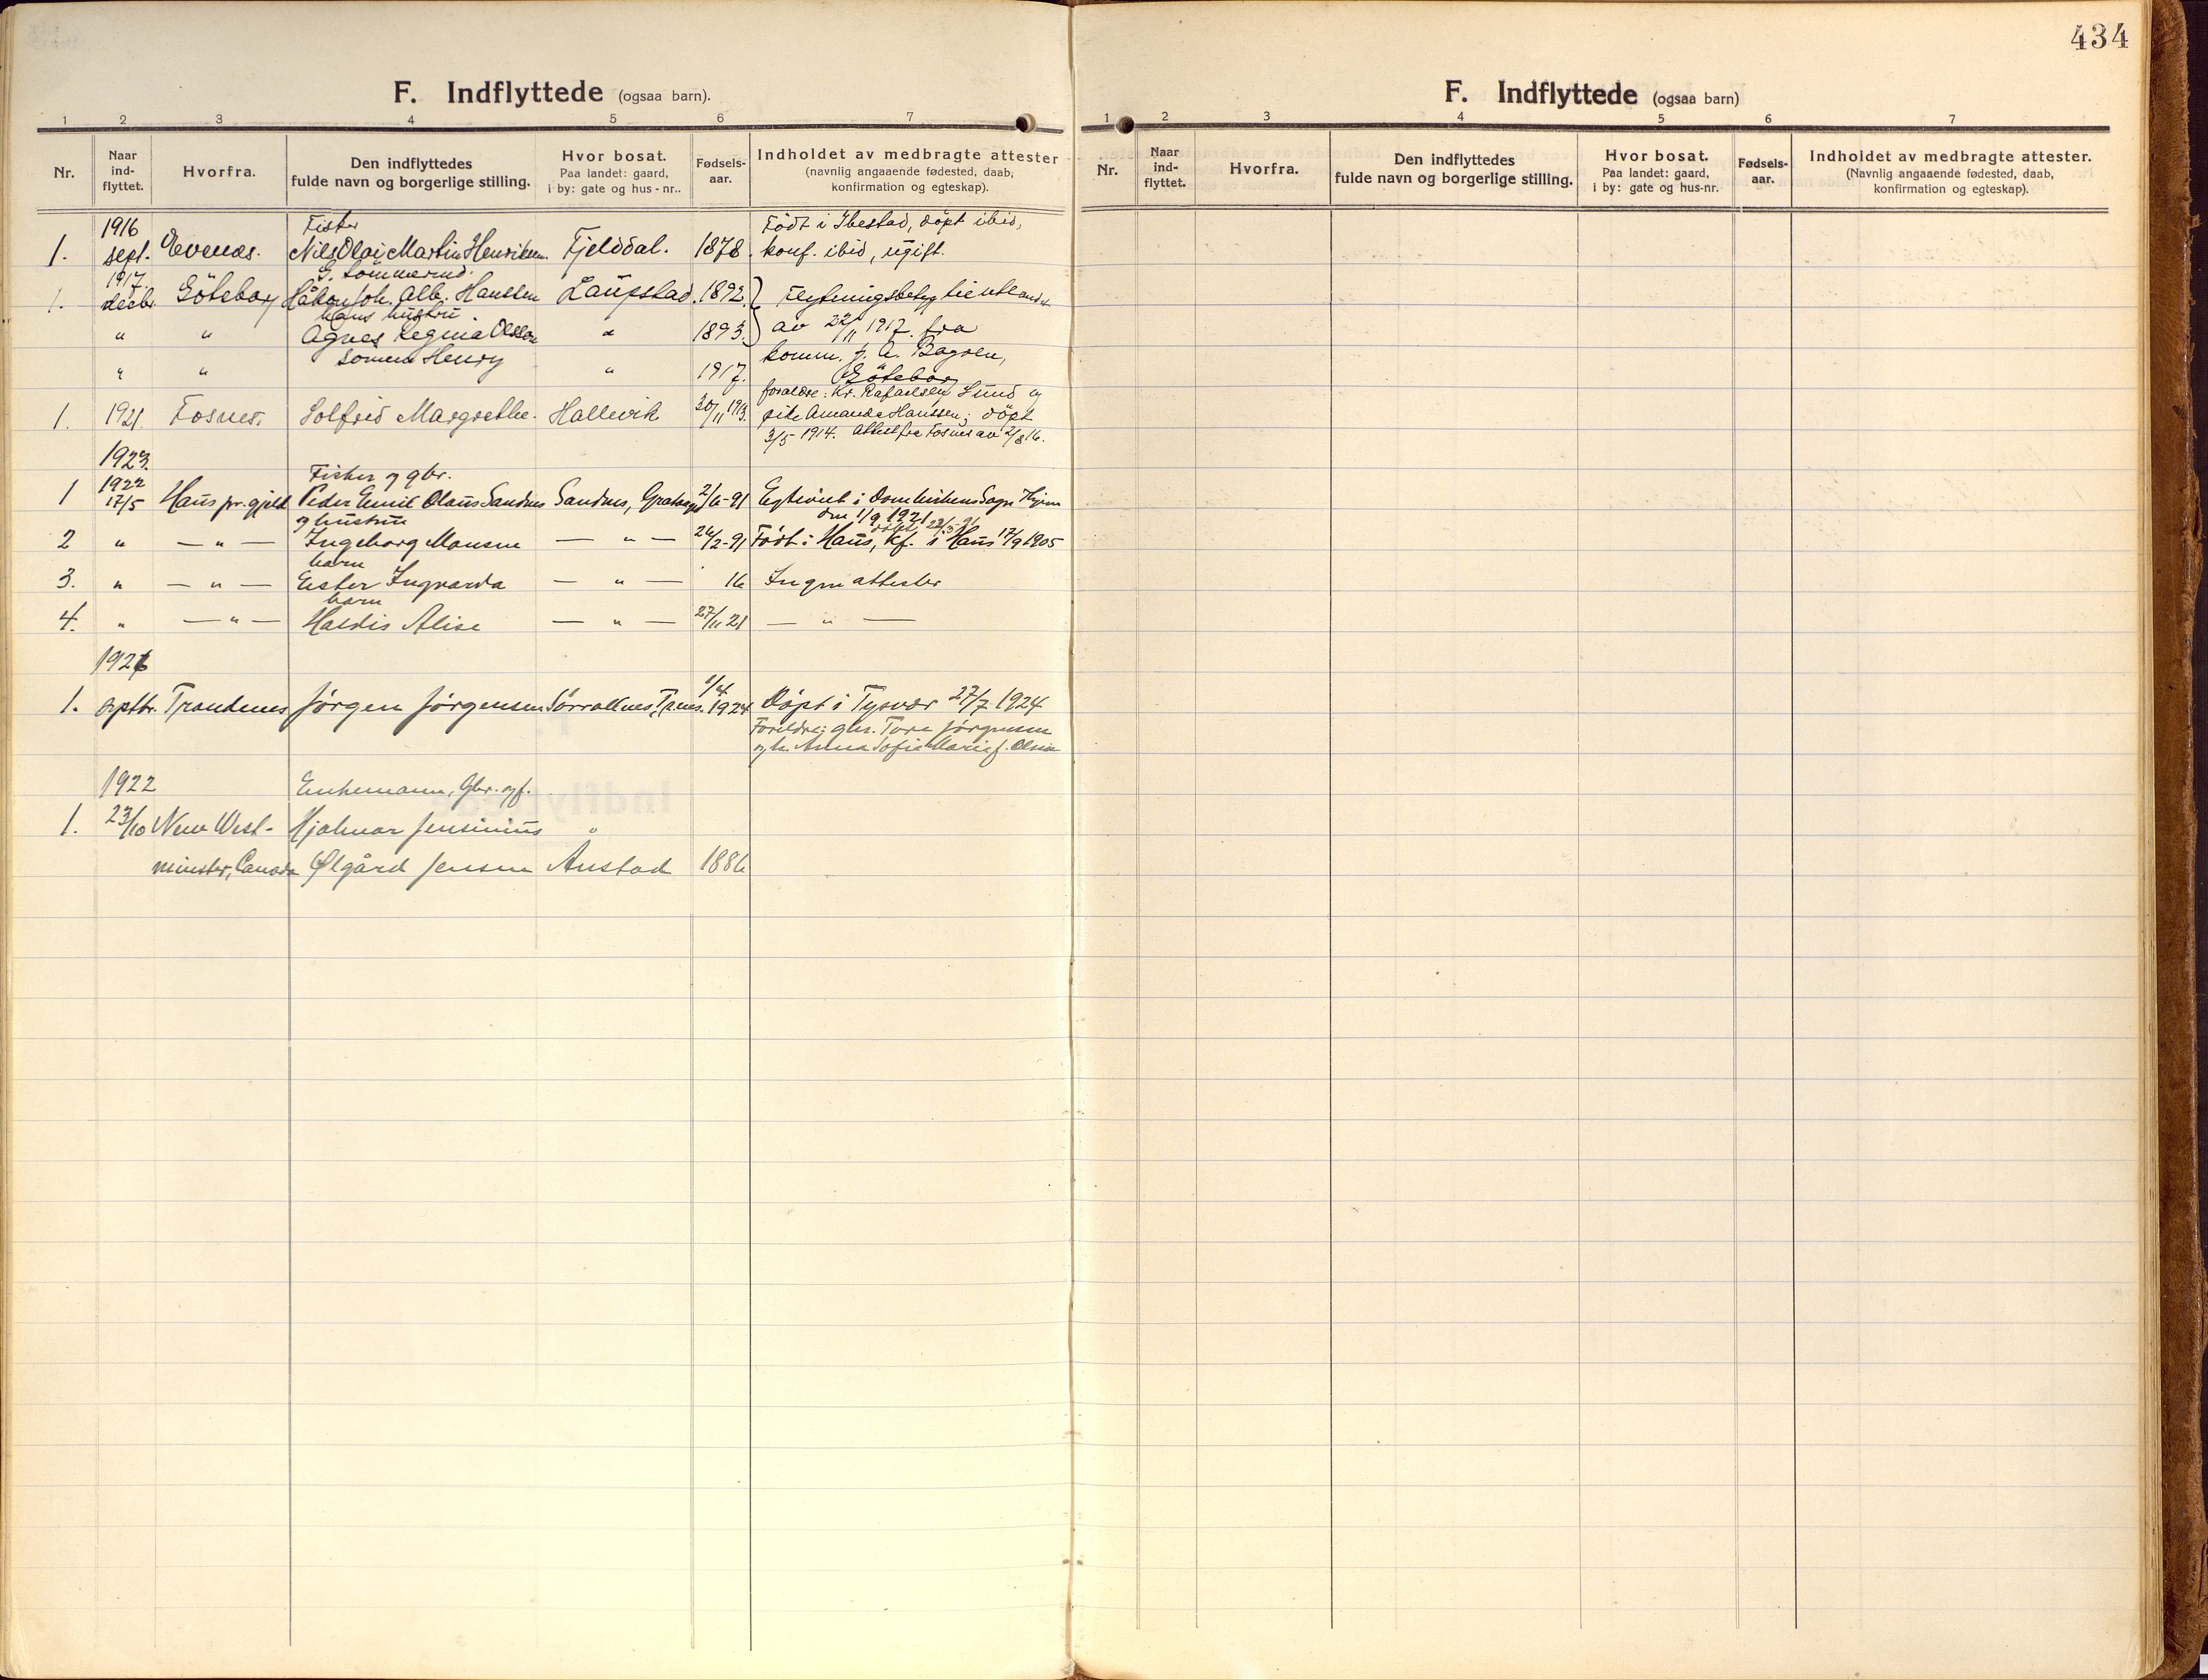 434
F. Indflyttede (ogsaa barn).
1 2 3 4 5 6 7
Nr. Naar ind-flyttet. Hvorfra. Den indflyttedes fulde navn og borgerlige stilling. Hvor bosat. Paa landet: gaard, i by: gate og hus-nr.. Fødsels-aar. Indholdet av medbragte attester (navnlig angaaende fødested, daab, konfirmation og egteskap).
1916 Fisker Født i Ibestad, döpt ibid,
1. sept. Evenes. Nils Olai Martin Henriksen. Fjelddal. 1878. konf. ibid, ugift.
1917.
1. decbr. Göteborg Håkon Joh. Alb. Hanssen Laupstad. 1892.
hans hustru
" " Agnes Regina Olsson " 1893. av 22/11 1917. fra
sönnen Henry komm. f. A. Bagren,
" " " 1917. Göteborg
foraldre: Kr. Rafaelsen Lund og
1. 1921. Fosnes. Solfrid Margrethe. Hallevik 30/11 1913. pike Amanda Hanssen; döpt
3/5 1914. Attest fra Fosnes av 2/8 16.
1923.
1922 Fisker og gbr.
1 17/5 Haus pr.gjeld Peder Emil Olaus Sandnes Sandnes, 2/6-91 Egteviet i Domkirkens Sogn
og hustru den 1/9 1921
döbt 22/3-91
2 " — " — Ingeborg Monsen — " — 26/2-91 Født i Haus, kf. i Haus 17/9 1905
barn
3. " — " — Ester Ingvarda — " — 16 Ingen attester
barn
4. " — " — Haldis Alise — " — 27/11 21 — " —
1926
1. septbr. Trondenes Jørgen Jørgensen Sørrollnes, 1/4 1924 Døpt i Tysvær 27/7 1924
Foreldre: gbr. Tore Jørgensen
og h. Anna Sofie Marie f. Olsen
1922 Enkemann, Gbr. og f.
1. 23/10 New West- Hjalmar Jensinius "
minster, Canada Ølgård Jensen Anstad 1886
F. Indflyttede (ogsaa barn)
1 2 3 4 5 6 7
Nr. Naar ind-flyttet. Hvorfra. Den indflyttedes fulde navn og borgerlige stilling. Hvor bosat. Paa landet: gaard, i by: gate og hus-nr. Fødsels-aar. Indholdet av medbragte attester. (Navnlig angaaende fødested, daab, konfirmation og egteskap).